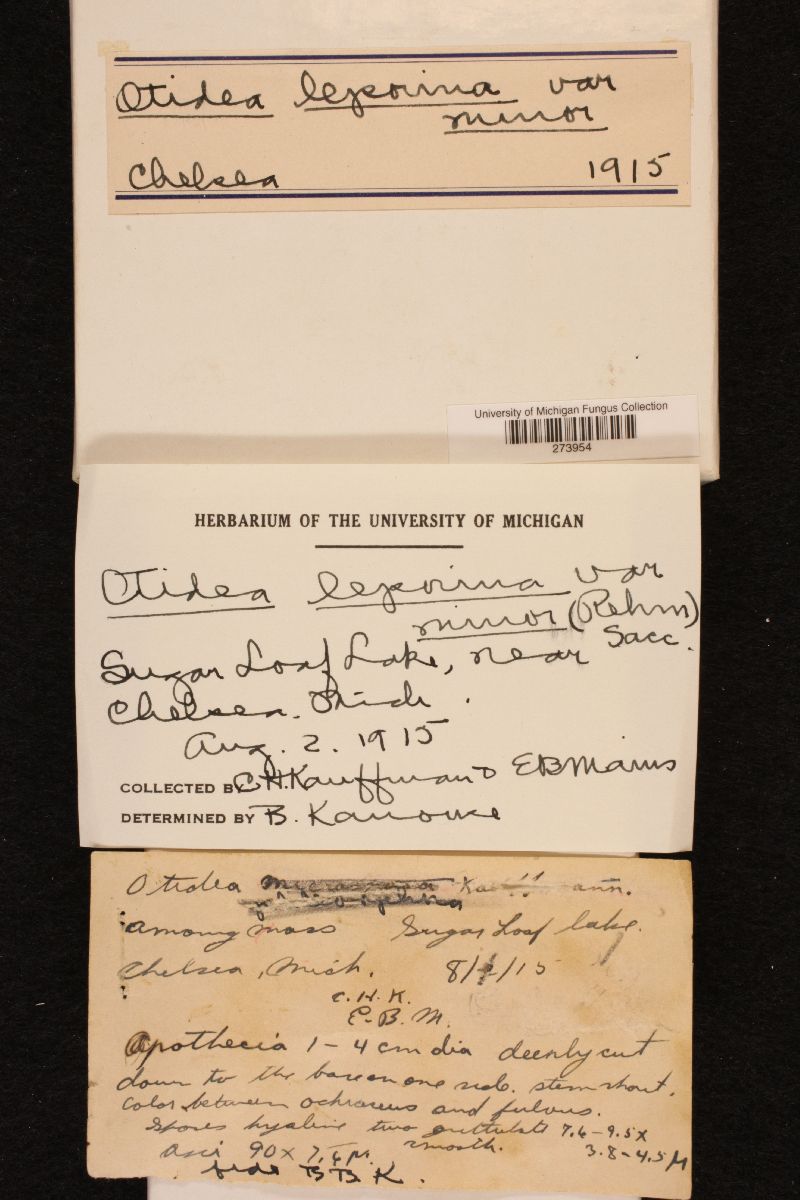 Otidea leporina var
minor
Chelsea 1915
University of Michigan Fungus Collection
273954
HERBARIUM OF THE UNIVERSITY OF MICHIGAN
Otidea leporina var
minor (Rehm)
Sacc.
Sugar Loaf Lake, near
Chelsea. Mich.
Aug. 2. 1915
COLLECTED BY C.H. Kauffman & EB Mains
DETERMINED BY B. Kanouse
Otidea ann.
among moss Sugar Loaf lake.
Chelsea, Mich. 8/2/15
C. H. K.
E. B. M.
Apothecia 1-4 cm dia deeply cut
down to the base on one side. stem short.
Color between ochraceus and fulvus.
Spores hyaline two guttulate 7.6-9.5 x
smooth. 3.8-4.5 µ
Asci 90 x 7.6 µ.
fide B B K.